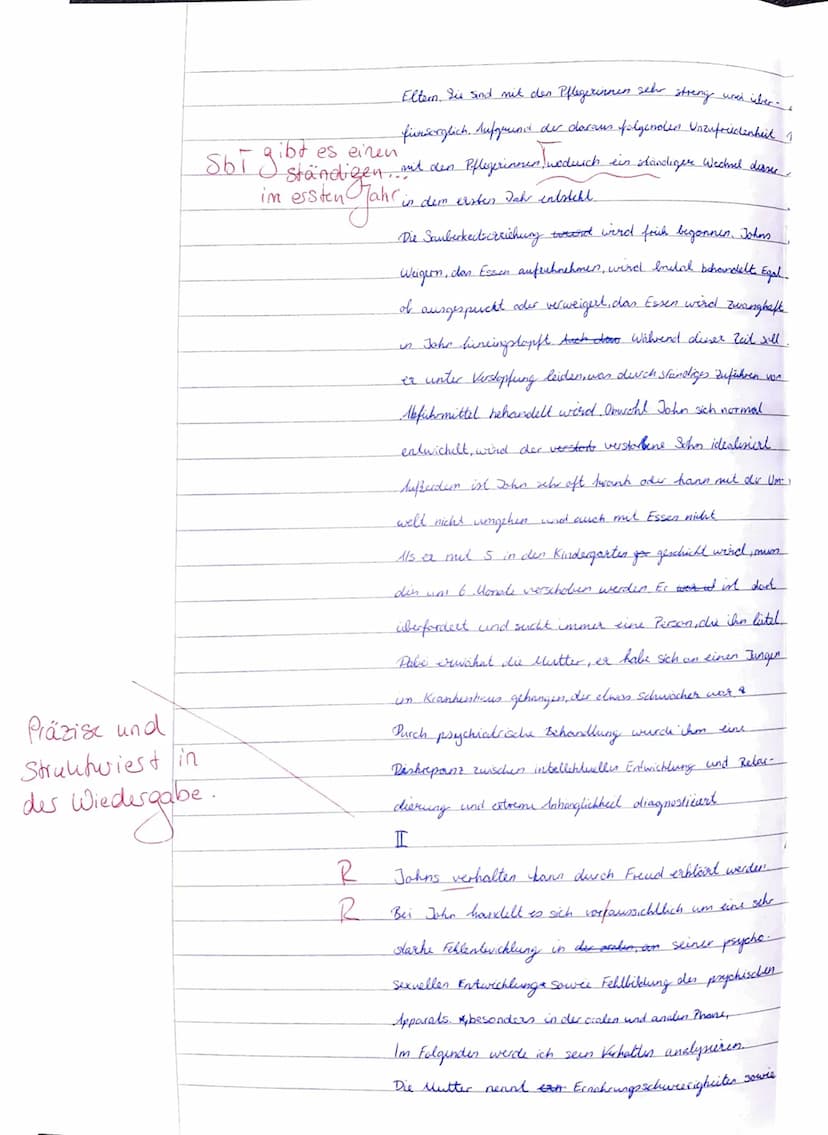 Eltern. Sie sind mit den Pflegerinnen sehr streng und über-
fürsorglich. Aufgrund der daraus folgenden Unzufriedenheit
SbT gibt es einen
ständigen...
im ersten Jahr
mit den Pflegerinnen, wodurch ein ständiger Wechsel dieser
in dem ersten Jahr entsteht.
Die Sauberkeitserziehung wird früh begonnen. Johns
Weigern, das Essen aufzunehmen, wird brutal behandelt. Egal
ob ausgespuckt oder verweigert, das Essen wird zwanghaft
in John hineingstopft. Auch dass Während dieser Zeit soll
er unter Verstopfung leiden, was durch ständiges Zuführen von
Abführmittel behandelt wird. Obwohl John sich normal
entwickelt, wird der verstorb verstorbene Sohn idealisiert
Außerdem ist John sehr oft krank oder kann mit der Um-
welt nicht umgehen und auch mit Essen nicht
Als er mit 5 in den Kindergarten geschickt wird, muss
dies um 6 Monate verschoben werden. Er ist dort
überfordert und sucht immer eine Person, die ihn leitet.
Dabei erwähnt die Mutter, er habe sich an einen Jungen
im Krankenhaus gehangen, der etwas schwächer war
Präzise und
Strukturiert in
der Wiedergabe.
Durch psychiatrische Behandlung wurde ihm eine
Diskrepanz zwischen intellektueller Entwicklung und Retar-
dierung und extreme Anhänglichkeit diagnostiziert
II
R
Johns verhalten kann durch Freud erklärt werden
R
Bei John handelt es sich voraussichtlich um eine sehr
starke Fehlentwicklung in seiner psycho-
sexuellen Entwicklung sowie Fehlbildung des psychischen
Apparats. besonders in der oralen und analen Phase,
Im Folgenden werde ich sein Verhalten analysieren.
Die Mutter nennt Ernährungsschwierigkeiten sowie